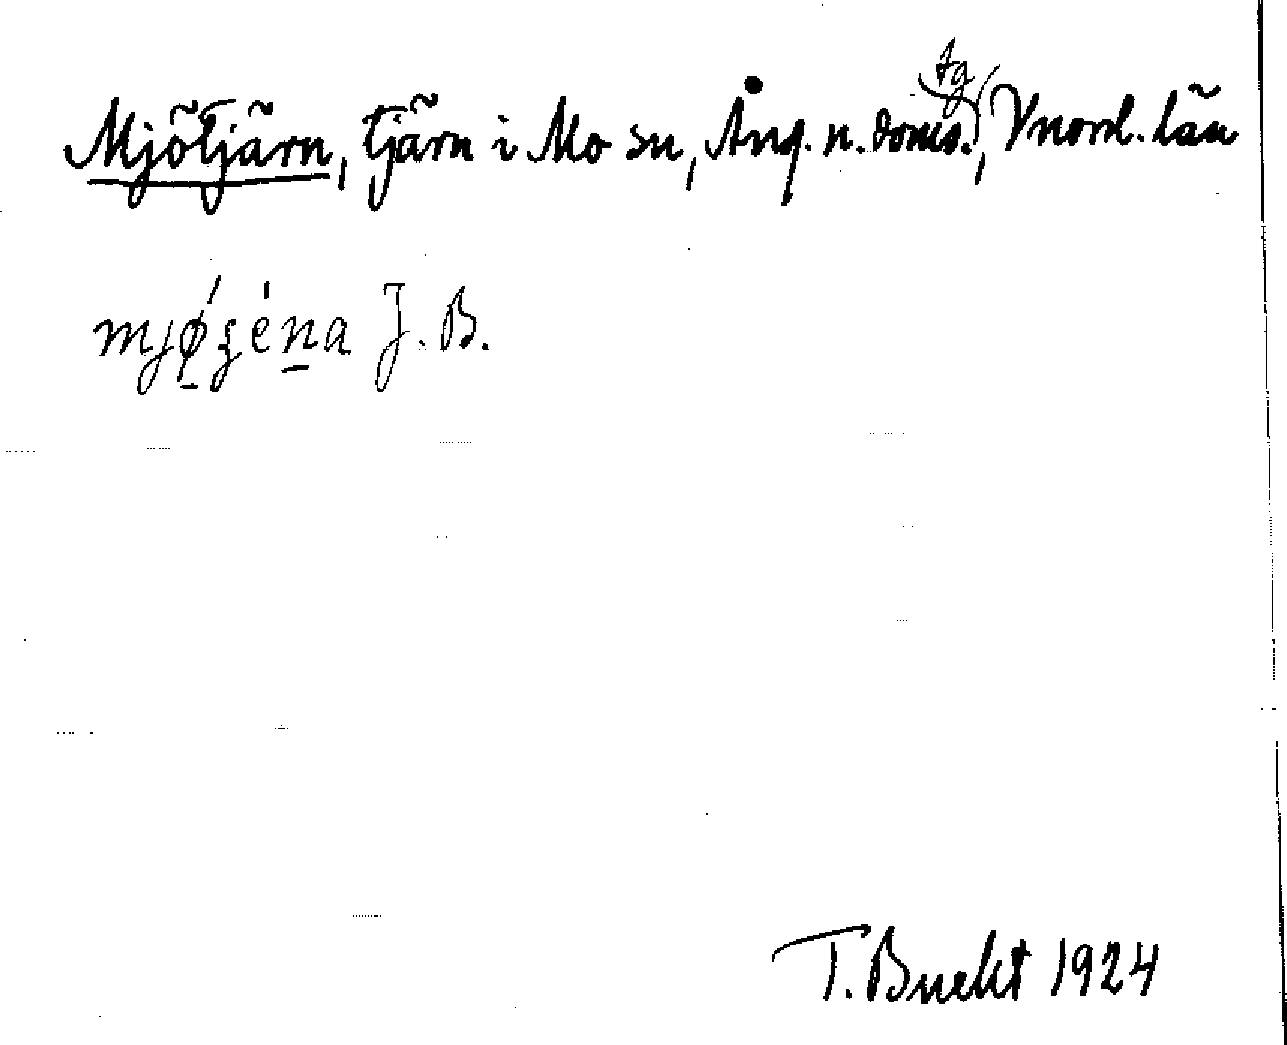 Mjötjärn, tjärn i Mo sn, Ång. n. doms. tg, Vnorrl. län
J. B.
T. Bucht 1924